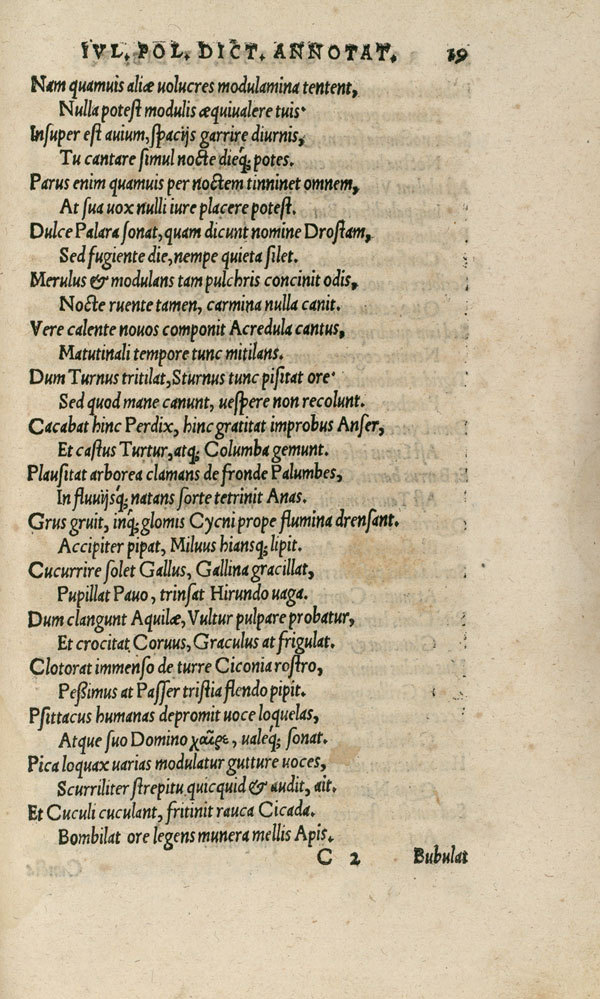 IVL. POL. DICT. ANNOTAT. 19
Nam quamuis aliæ uolucres modulamina tentent,
Nulla potest modulis æquiualere tuis·
Insuper est auium, spacijs garrire diurnis,
Tu cantare simul nocte dieq́; potes.
Parus enim quamuis per noctem tinninet omnem,
At sua uox nulli iure placere potest.
Dulce Palara sonat, quam dicunt nomine Drostam,
Sed fugiente die, nempe quieta silet.
Merulus & modulans tam pulchris concinit odis,
Nocte ruente tamen, carmina nulla canit.
Vere calente nouos componit Acredula cantus,
Matutinali tempore tunc mitilans.
Dum Turnus tritilat, Sturnus tunc pisitat ore·
Sed quod mane canunt, uespere non recolunt.
Cacabat hinc Perdix, hinc gratitat improbus Anser,
Et castus Turtur, atq; Columba gemunt.
Plausitat arborea clamans de fronde Palumbes,
In fluuijsq́; natans forte tetrinit Anas.
Grus gruit, inq́; glomis Cycni prope flumina drensant.
Accipiter pipat, Miluus hiansq́; lipit.
Cucurrire solet Gallus, Gallina gracillat,
Pupillat Pauo, trinsat Hirundo uaga.
Dum clangunt Aquilæ, Vultur pulpare probatur,
Et crocitat Coruus, Graculus at frigulat.
Clotorat immenso de turre Ciconia rostro,
Peßimus at Passer tristia flendo pipit.
Psittacus humanas depromit uoce loquelas,
Atque suo Domino χαῖρε, ualeq́; sonat.
Pica loquax uarias modulatur gutture uoces,
Scurriliter strepitu quicquid & audit, ait.
Et Cuculi cuculant, fritinit rauca Cicada.
Bombilat ore legens munera mellis Apis.
C 2 Bubulat